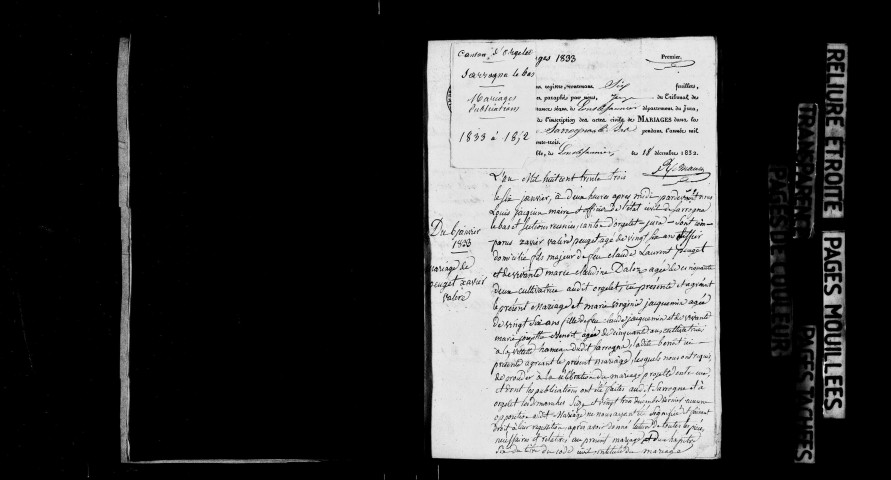 Canton d'Orgelet
Sarrogna le bas
Mariages
Publications
1833 à 1842
ges 1833
Premier.
registre, contenant Six feuillets,
paraphés par nous, Juge du Tribunal de
Lons-le-Saunier département du Jura,
l'inscription des actes civils de MARIAGES dans la
Sarrogna le bas pendant l'année mil
trois.
Lons-le-Saunier, le 18 décembre 1832.
Du 6 janvier
1833
mariage de
pouget xavier
valère
L'an Mil huit cent trente trois
le six janvier, à deux heures après midi pardevant nous
Louis jacquin maire et officier de l'état civil de Sarrogna
le bas et sections réunies, canton d'orgelet, jura, sont com-
parus xavier valère pouget agé de vingt six ans
domicilié fils majeur de feu claude Laurent pouget
et de vivante marie claudine Daloz, agée de cinquante
deux cultivatrice audit orgelet, ici présente et agréant
le présent Mariage et marie virginie jacquemin agée
de vingt six ans fille de feu claude jacquemin et de vivante
marie josephte Benoit agée de cinquante ans cultivatrice
à la hameau dudit Sarrogna, ladite benoit ici
présente agréant le présent mariage, lesquels nous ont requis
de procéder à la célébration du mariage projetté entre eux,
et dont les publications ont été faites audit Sarrogna et à
orgelet les dimanches Seize et vingt trois décembre dernier aucune
opposition audit Mariage ne nous ayant été signifiée faisant
droit à leur réquisition après avoir donné lecture de toutes les pièces
nécessaires et relatives au présent mariage et du chapitre
six du titre du code civil intitulé du mariage
RELIURE ETROITE
TRANSPARENCE
PAGES DE COULEUR
PAGES MOUILLEES
PAGES TACHEES